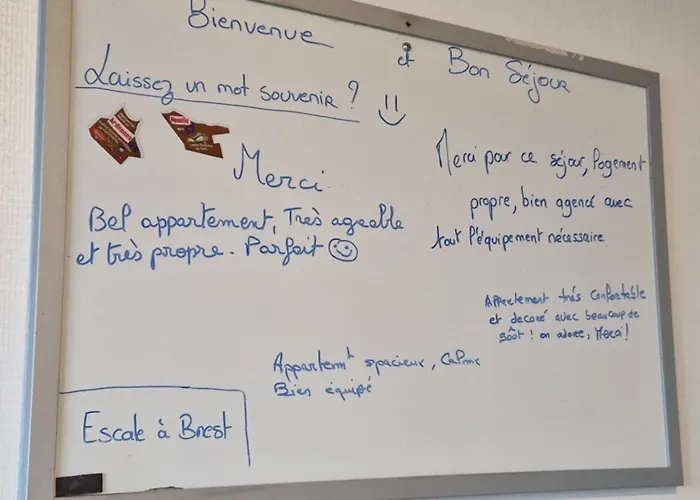 Bienvenue et Bon Séjour
Laissez un mot souvenir ?
Merci
Bel appartement, Très agréable
et très propre. Parfait
Merci pour ce séjour, logement
propre, bien agencé avec
tout l'équipement nécessaire.
Appartement très confortable
et décoré avec beaucoup de
goût ! on adore, Merci !
Appartemt spacieux, calme
Bien équipé
Escale à Brest
Ardennes